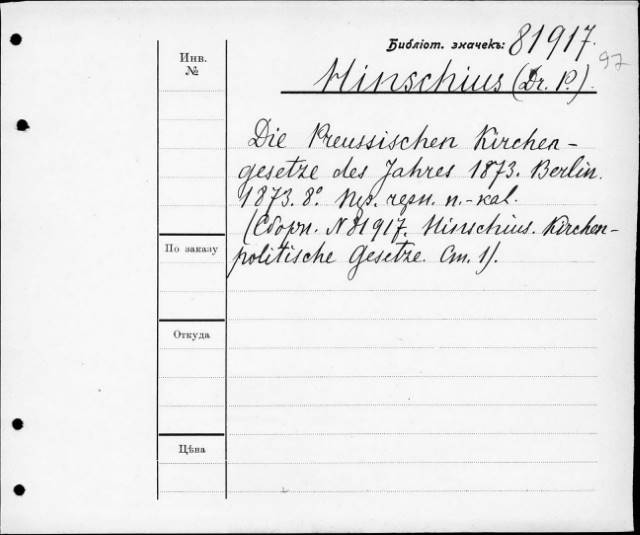 Библіот. значекъ: 81917.
97
Инв.
№
Hinschius (Dr. P.).
Die Preussischen Kirchen-
gesetze des Jahres 1873. Berlin.
1873. 8°.
(Сборн. N 81917. Hinschius. Kirchen-
politische Gesetze. Ст. 1).
По заказу
Откуда
Цѣна